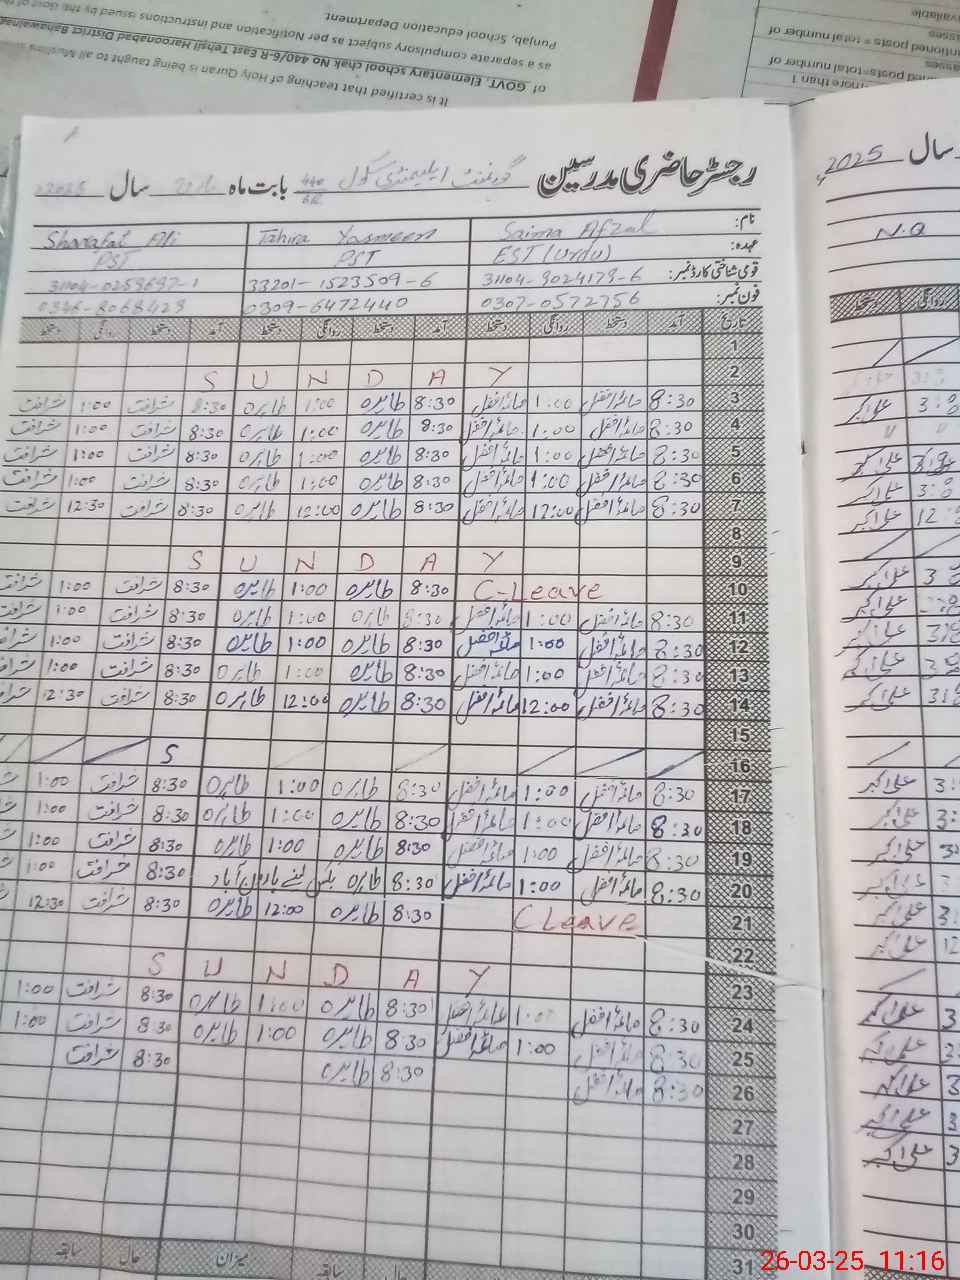 It is certified that teaching of Holy Quran is being taught to all Muslim
of GOVT. Elementary school chak No 440/6-R East Tehsil Haroonabad District Bahawalnagar
as a separate compulsory subject as per Notification and instructions issued by the Govt of the
Punjab, School education Department.
more than 1
posts=total number of
asses
ntioned posts= total number of
asses
available
رجسٹر حاضری مدرسین گورنمنٹ ایلیمنٹری سکول 440/6R بابت ماہ مارچ سال 2025
نام: Saima Afzal Tahira Yasmeen Sharafat Ali
عہدہ: EST (Urdu) PST PST
قومی شناختی کارڈ نمبر: 31104-9024179-6 33201-1523509-6 31104-0259697-1
فون نمبر: 0307-0572756 0309-6472440 0346-8068429
تاریخ آمد دستخط روانگی دستخط آمد دستخط روانگی دستخط آمد دستخط روانگی دستخط
1
2 S U N D A Y
3 8:30 صائمہ افضل 1:00 صائمہ افضل 8:30 طاہرہ 1:00 طاہرہ 8:30 شرافت 1:00 شرافت
4 8:30 صائمہ افضل 1:00 صائمہ افضل 8:30 طاہرہ 1:00 طاہرہ 8:30 شرافت 1:00 شرافت
5 8:30 صائمہ افضل 1:00 صائمہ افضل 8:30 طاہرہ 1:00 طاہرہ 8:30 شرافت 1:00 شرافت
6 8:30 صائمہ افضل 1:00 صائمہ افضل 8:30 طاہرہ 1:00 طاہرہ 8:30 شرافت 1:00 شرافت
7 8:30 صائمہ افضل 12:00 صائمہ افضل 8:30 طاہرہ 12:00 طاہرہ 8:30 شرافت 12:30 شرافت
8
9 S U N D A Y
10 C-Leave 8:30 طاہرہ 1:00 طاہرہ 8:30 شرافت 1:00 شرافت
11 8:30 صائمہ افضل 1:00 صائمہ افضل 8:30 طاہرہ 1:00 طاہرہ 8:30 شرافت 1:00 شرافت
12 8:30 صائمہ افضل 1:00 صائمہ افضل 8:30 طاہرہ 1:00 طاہرہ 8:30 شرافت 1:00 شرافت
13 8:30 صائمہ افضل 1:00 صائمہ افضل 8:30 طاہرہ 1:00 طاہرہ 8:30 شرافت 1:00 شرافت
14 8:30 صائمہ افضل 12:00 صائمہ افضل 8:30 طاہرہ 12:00 طاہرہ 8:30 شرافت 12:30 شرافت
15
16 S
17 8:30 صائمہ افضل 1:00 صائمہ افضل 8:30 طاہرہ 1:00 طاہرہ 8:30 شرافت 1:00
18 8:30 صائمہ افضل 1:00 صائمہ افضل 8:30 طاہرہ 1:00 طاہرہ 8:30 شرافت 1:00
19 8:30 صائمہ افضل 1:00 صائمہ افضل 8:30 طاہرہ 1:00 طاہرہ 8:30 شرافت 1:00
20 8:30 صائمہ افضل 1:00 صائمہ افضل 8:30 طاہرہ بکس لینے ہارون آباد 8:30 شرافت 1:00
21 C Leave 8:30 طاہرہ 12:00 طاہرہ 8:30 شرافت 12:30
22
23 S U N D A Y
24 8:30 صائمہ افضل 1:00 صائمہ افضل 8:30 طاہرہ 1:00 طاہرہ 8:30 شرافت 1:00
25 8:30 صائمہ افضل 1:00 صائمہ افضل 8:30 طاہرہ 1:00 طاہرہ 8:30 شرافت 1:00
26 8:30 صائمہ افضل 8:30 طاہرہ 8:30 شرافت
27
28
29
30
31
حال سابقہ میزان حال سابقہ
سال 2025
N.Q
روانگی دستخط
26-03-25 11:16